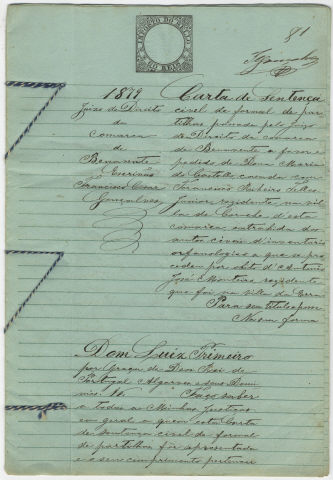 81
IMPOSTO DO SELLO
REIS
1879
Juizo de Direito
da
comarca
de
Benavente
Escrivão
Francisco Cesar
Gonçalves
Carta de sentença
civel de formal de par
tilhas passada pelo Juizo
de Direito da comarca
de Benavente a favor e
pedido de Dona Maria
do Castello casada com
Francisco
Junior residente na vil
la de Coruche d'esta
comarca, extrahida dos
autos civeis d'inventario
orphanologico a que se pro
cedeu por obito d'Antonio
José Monteiro residente
que foi na villa da Erra
Para seu titulo e posse
Na em forma
Dom Luiz Primeiro
por Graça de Deus Rei de
Portugal Algarves e seus Domi
nios &. Faço saber
a todas as Minhas Justiças
em geral a quem esta Carta
de sentença civel de formal
de partilhas fôr apresentada
e o seu cumprimento pertencer